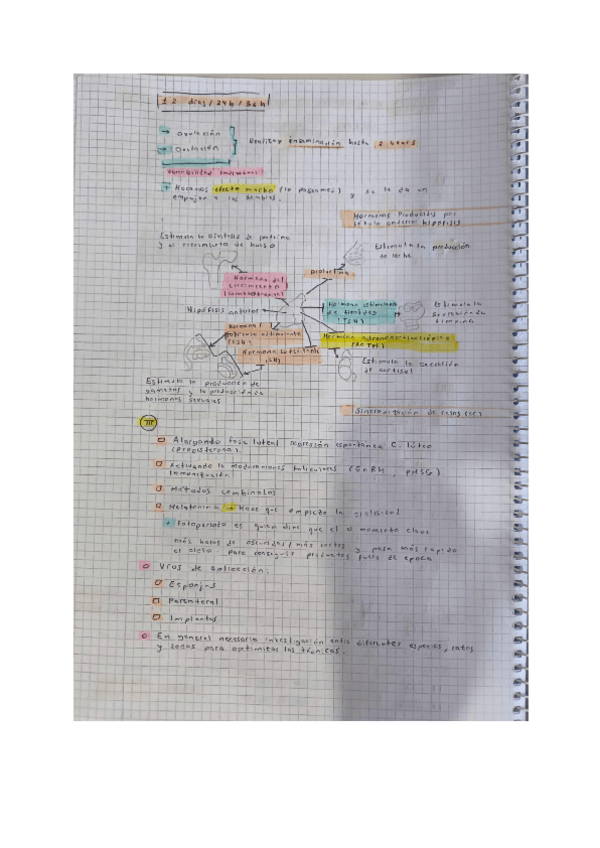 12 días / 24h / 36h
→ Ovulación
→ Ovulación
Realizar inseminación hasta 2 veces
+ Hacemos efecto macho (lo paseamos) y se le da un
empujón a las hembras.
Hormonas Producidas por
lóbulo anterior hipófisis
Estimula la síntesis de proteína
y el crecimiento de hueso
Estimula la producción
de leche
Prolactina
Hormona del
crecimiento
(somatotropina)
Hormona estimulante
de tiroides
(TSH)
Estimula la
secreción de
Hipófisis anterior
Hormona
estimulante
(FSH)
Hormona luteinizante
(LH)
Hormona adrenocorticotrópica
(ACTH)
Estimula la secreción
de cortisol
Estimula la producción de
gametos y la producción de
hormonas sexuales
Sincronización de celos (SC)
III
Alargando fase luteal regresión espontánea C. lúteo
(progesterona).
Activando la foliculares (GnRH, PMSG)
Inmunización
Métodos combinados
Melatonina → Hace que empiece la ciclicidad
+ Fotoperiodo es quien dice que el momento clave
más horas de oscuridad / más cortos y pasa más rápido
el ciclo para conseguir fuera de época
Vías de aplicación:
Esponjas
Parenteral
Implantes
En general necesaria investigación entre diferentes especies, razas
y zonas para optimizar las técnicas.